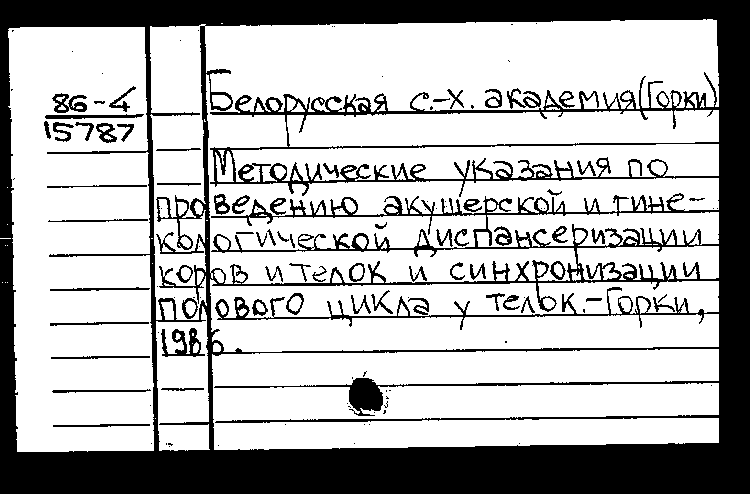 86-4
15787
Белорусская с.-х. академия (Горки)
Методические указания по
проведению акушерской и гине-
кологической диспансеризации
коров и телок и синхронизации
полового цикла у телок.-Горки,
1986.